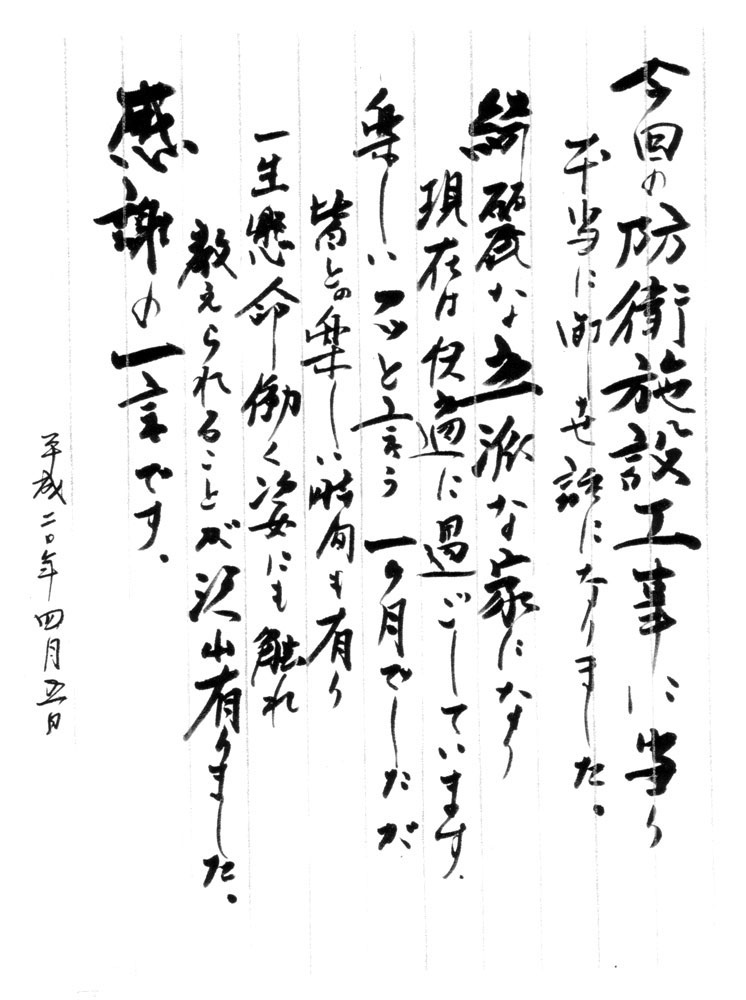 今回の防衛施設工事に当り
本当に御世話になりました。
綺麗な立派な家になり
現在は快適に過ごしています。
楽しいと言う一ヶ月でしたが
皆との楽しい時間も有り
一生懸命働く姿にも触れ
教えられることが沢山有りました。
感謝の一言です。
平成二〇年四月五日